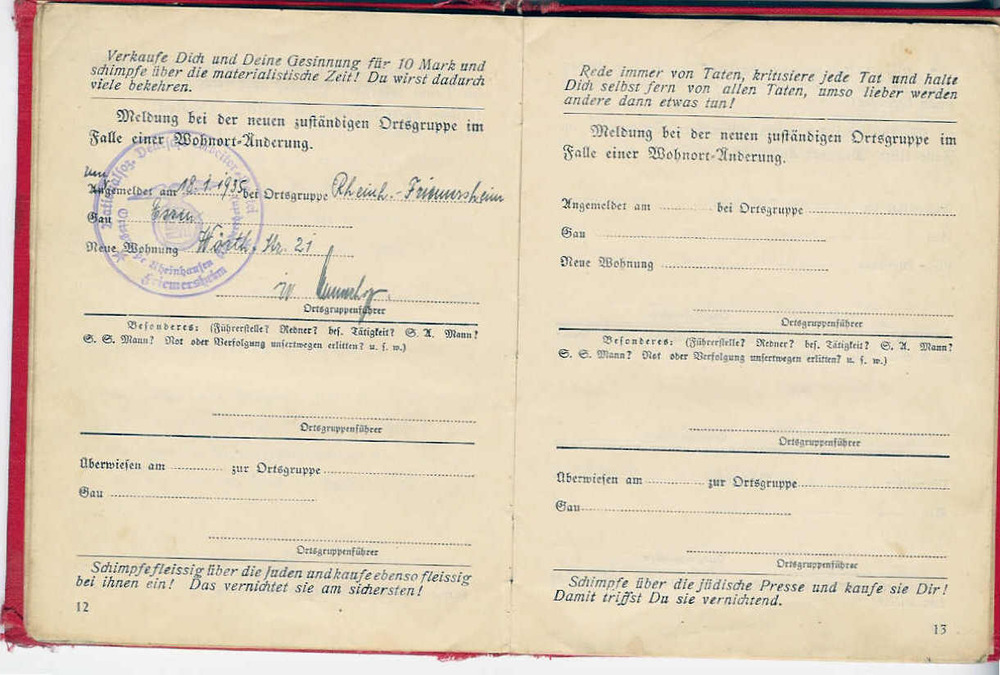 Verkaufe Dich und Deine Gesinnung für 10 Mark und
schimpfe über die materialistische Zeit! Du wirst dadurch
viele bekehren.
Meldung bei der neuen zuständigen Ortsgruppe im
Falle einer Wohnort-Änderung.
um
Angemeldet am 18.1.1935 bei Ortsgruppe Rheinh.-Friemersheim
Gau Essen
Neue Wohnung Wörth. Str. 21
Ortsgruppenführer
Besonderes: (Führerstelle? Redner? bes. Tätigkeit? S. A. Mann?
S. S. Mann? Not oder Verfolgung unsertwegen erlitten? u. s. w.)
Ortsgruppenführer
Überwiesen am zur Ortsgruppe
Gau
Ortsgruppenführer
Schimpfe fleissig über die Juden und kaufe ebenso fleissig
bei ihnen ein! Das vernichtet sie am sichersten!
12
Nationalsoz. Deutsche Arbeiterpartei
Rheinhausen
Friemersheim
Rede immer von Taten, kritisiere jede Tat und halte
Dich selbst fern von allen Taten, umso lieber werden
andere dann etwas tun!
Meldung bei der neuen zuständigen Ortsgruppe im
Falle einer Wohnort-Änderung.
Angemeldet am bei Ortsgruppe
Gau
Neue Wohnung
Ortsgruppenführer
Besonderes: (Führerstelle? Redner? bes. Tätigkeit? S. A. Mann?
S. S. Mann? Not oder Verfolgung unsertwegen erlitten? u. s. w.)
Ortsgruppenführer
Überwiesen am zur Ortsgruppe
Gau
Ortsgruppenführer
Schimpfe über die jüdische Presse und kaufe sie Dir!
Damit triffst Du sie vernichtend.
13